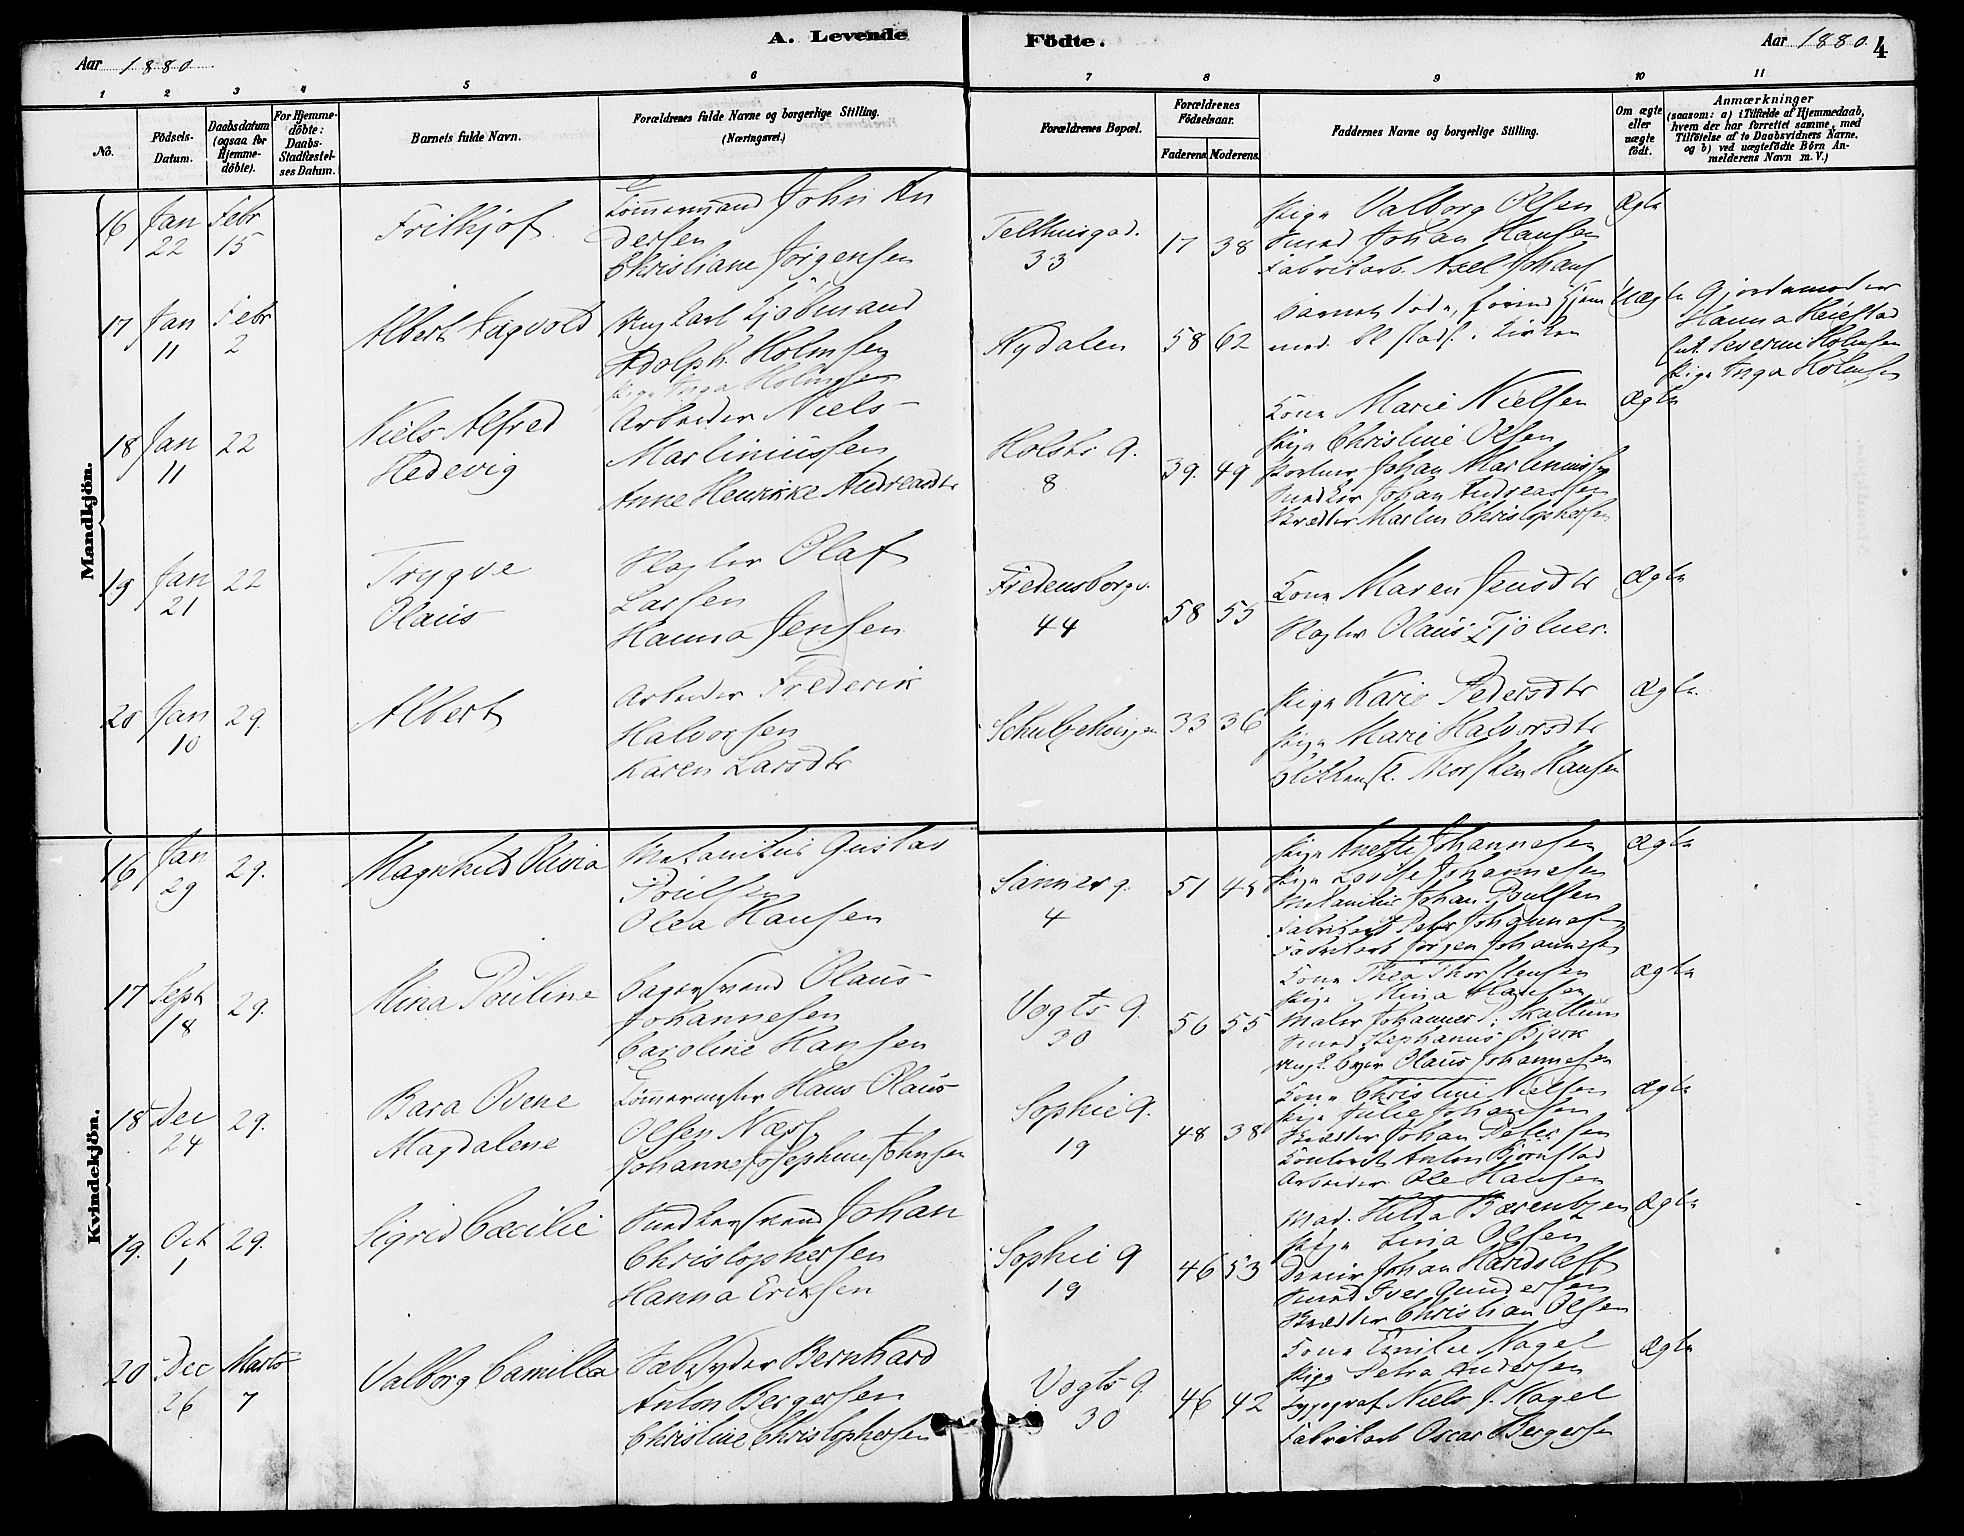 A. Levende Födte.
Aar 1880.
Aar 1880. 4
1 2 3 4 5 6 7 8 9 10 11
No.
Födsels-Datum.
Daabsdatum (ogsaa for Hjemme-döbte).
For Hjemme-döbte: Daabs-Stadfæstel-ses Datum.
Barnets fulde Navn.
Forældrenes fulde Navne og borgerlige Stilling. (Næringsvei.)
Forældrenes Bopæl.
Forældrenes Födselsaar.
Faderens. Moderens.
Faddernes Navne og borgerlige Stilling.
Om ægte eller uægte födt.
Anmærkninger (saasom: a) i Tilfælde af Hjemmedaab, hvem der har forrettet samme, med Tilföielse af to Daabsvidners Navne. og b) ved uægtefödte Börn An-melderens Navn m. V.)
Mandkjön.
16 Jan 22 Febr 15
Frithjof
Tömmermand John An
dersen
Christiane Jörgensen
Telthusgad.
33
17 38
Pige Valborg Olsen
Smed Johan Hansen
Fabrikarb. Axel Johans
Ægte
17 Jan 11 Febr 2
Albert Ingvold
Ung Karl
Adolph Holmsen
Pige Inga Holmsen
Nydalen
58 62
Uægte
Gjordemoder
Hanna
Ent. Severine Holmsen
Pige Inga Holmsen
18 Jan 11 22
Niels Alfred
Hedevig
Arbeider Niels
Martiniussen
Anne Henrikke Andreasdtr
Holsts g.
8
39. 49
Kone Marie Nielsen
Pige Christine Olsen
Portner Johan Martiniussen
Snedker Johan Andreassen
Skrædder Martin Christophersen
Ægte
19 Jan 21 22
Trygve
Olaus
Slagter Olaf
Larsen
Hanna Jensen
Fredensborgv.
44
58 55
Kone Maren Jensdtr
Slagter Olaus Fjölner.
Ægte
20 Jan 10 29.
Albert
Arbeider Frederik
Halvorsen
Karen Larsdtr
Schultzehaugen
33 36
Pige Karie Pedersdtr
Pige Marie Halvorsdtr
Blikkensl. Thorsten Hansen
Ægte
Kvindekjön.
16 Jan 29 29.
Magnhild Olivia
Mekanikus Gustav
Poulsen
Olea Hansen
Sannerg.
4
51 45
Pige Anette Johannesen
Pige Lovise Johannesen
Mekanikus Johan Poulsen
Fabrikarb Peter Johannesen
Fabrikarb Jörgen Johannesen
Ægte
17 Sept 18 29.
Mina Pouline
Bagersvend Olaus
Johannesen
Caroline Hansen
Vogts g.
30
56 55
Kone Thea Thorstensen
Pige Mina Hansen
Maler Johannes P. Skallum
Smed Stephanus Bjerk
Ungk. Bager Olaus Johannesen
Ægte
18 Dec 24 29.
Bara Ovene
Magdalene
Tömmermester Hans Olaus
Olsen Næss
Johanne Josephine Johnsen
Sophie g.
19
48 38
Kone Christine Nielsen
Pige Julie Johansen
Skrædder Johan Petersen
Kontorist Anton Björnstad
Arbeider Ole Hansen
Ægte
19. Oct 1 29.
Sigrid Cæcilie
Snedkersvend Johan
Christophersen
Hanna Eriksen
Sophie g
19
46 53
Mad. Hilda Bærentzen
Pige Lina Olsen
Johan Hardsleff
Smed Iver Gundersen
Skrædder Christian Olsen
Ægte
20 Dec 26 Marts 7
Valborg Camilla
Sæbesyder Bernhard
Anton Bergersen
Christine Christophersen
Vogts g.
30
46 42
Kone Emilie Nagel
Pige Petra Andersen
Typograf Niels J. Nagel
Fabrikarb Oscar Bergersen
Ægte